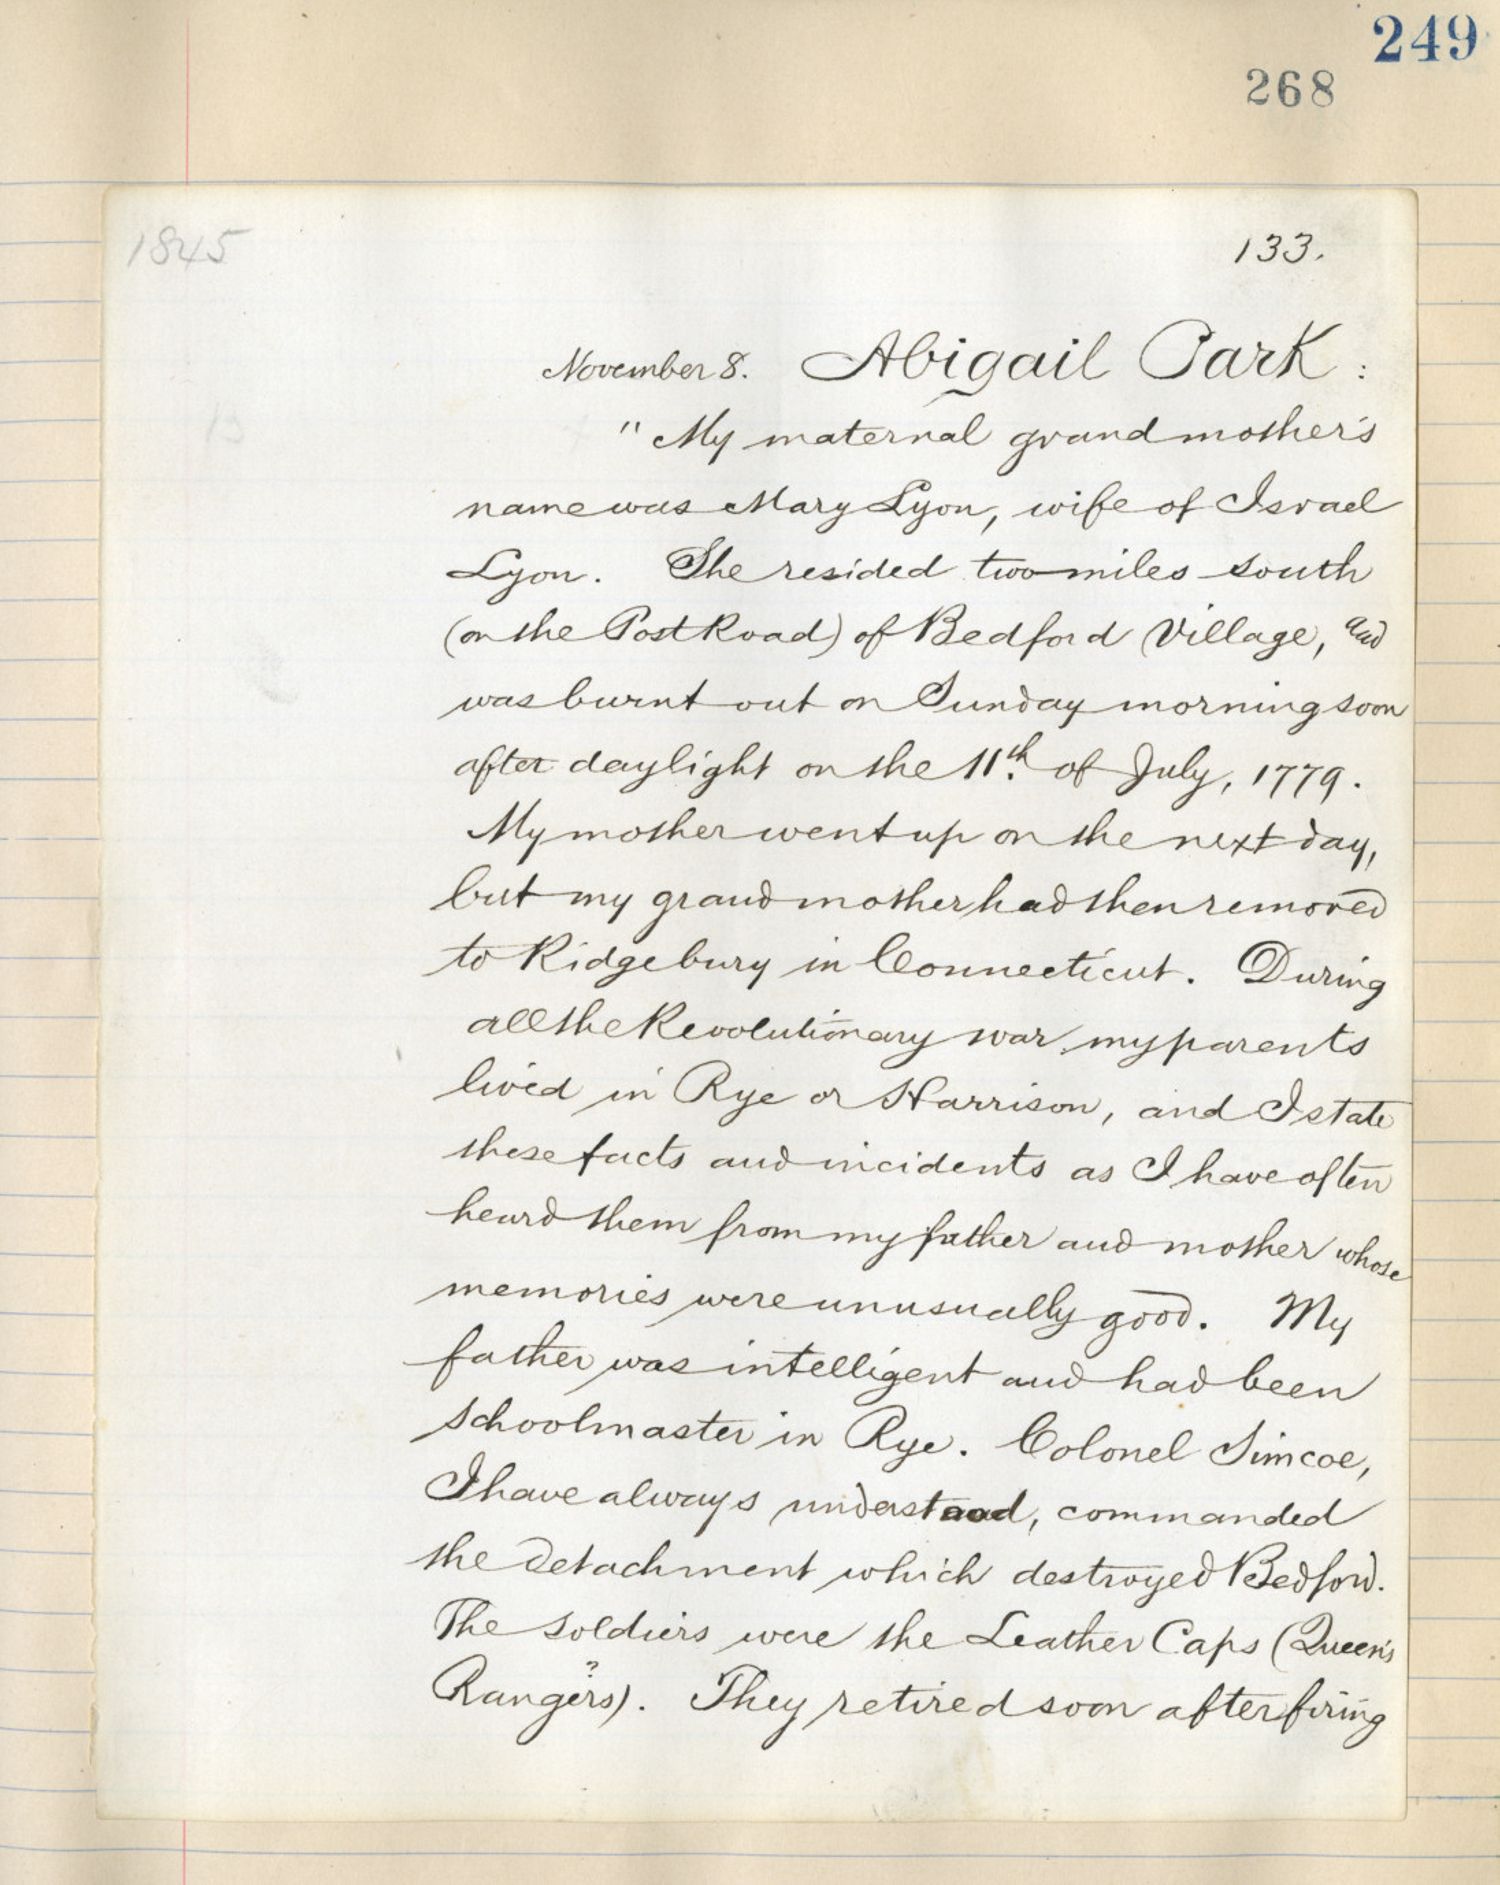 249
268
1845
133.
November 8. Abigail Park :
"My maternal grandmother's
name was Mary Lyon, wife of Israel
Lyon. She resided two miles south
(on the Post Road) of Bedford Village, and
was burnt out on Sunday morning soon
after daylight on the 11th. of July, 1779.
My mother went up on the next day,
but my grandmother had then removed
to Ridgebury in Connecticut. During
all the Revolutionary war my parents
lived in Rye or Harrison, and I state
these facts and incidents as I have often
heard them from my father and mother whose
memories were unusually good. My
father was intelligent and had been
schoolmaster in Rye. Colonel Simcoe,
I have always understood, commanded
the detachment which destroyed Bedford.
The soldiers were the Leather Caps (Queen's
Rangers?). They retired soon after firing